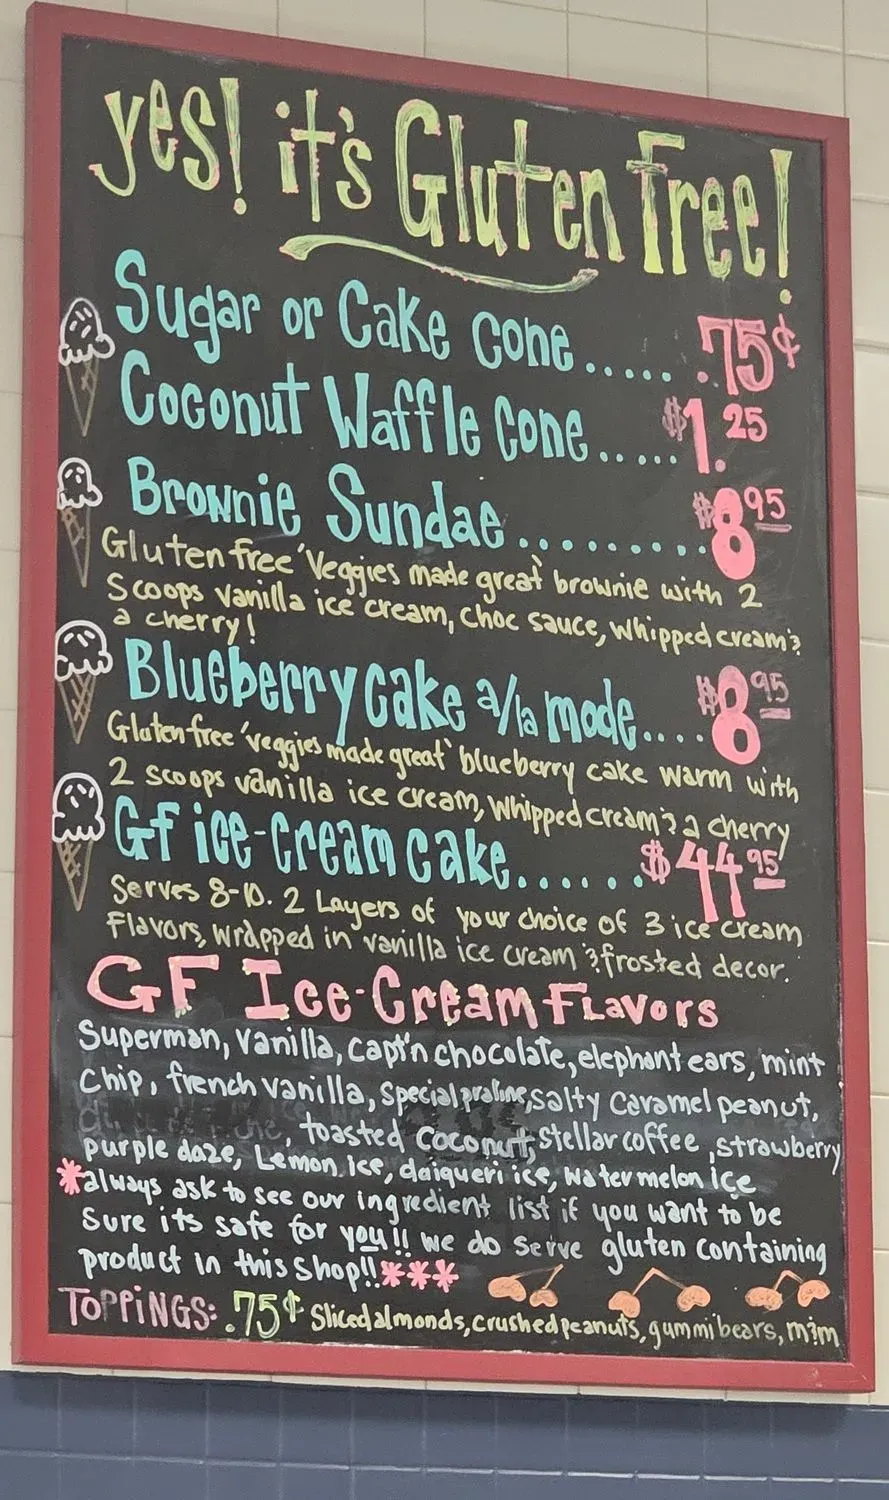 yes! it's Gluten Free!
Sugar or Cake Cone ..... .75¢
Coconut Waffle Cone ..... $1.25
Brownie Sundae ......... $8.95
Gluten free 'Veggies made great' brownie with 2
Scoops vanilla ice cream, choc sauce, whipped cream &
a cherry!
Blueberry Cake a/la mode.... $8.95
Gluten free 'veggies made great' blueberry cake warm with
2 scoops vanilla ice cream, whipped cream & a cherry
GF ice-cream cake....... $44.95
Serves 8-10. 2 Layers of your choice of 3 ice cream
Flavors, wrapped in vanilla ice cream & frosted decor.
GF Ice-Cream Flavors
Superman, vanilla, capt'n chocolate, elephant ears, mint
chip, french vanilla, special praline, salty caramel peanut,
, toasted coconut, stellar coffee, strawberry
purple daze, Lemon ice, daiqueri ice, watermelon ice
*always ask to see our ingredient list if you want to be
Sure its safe for you!! we do serve gluten containing
product in this shop!!***
TOPPINGS: .75¢ Sliced almonds, crushed peanuts, gummi bears, m&m